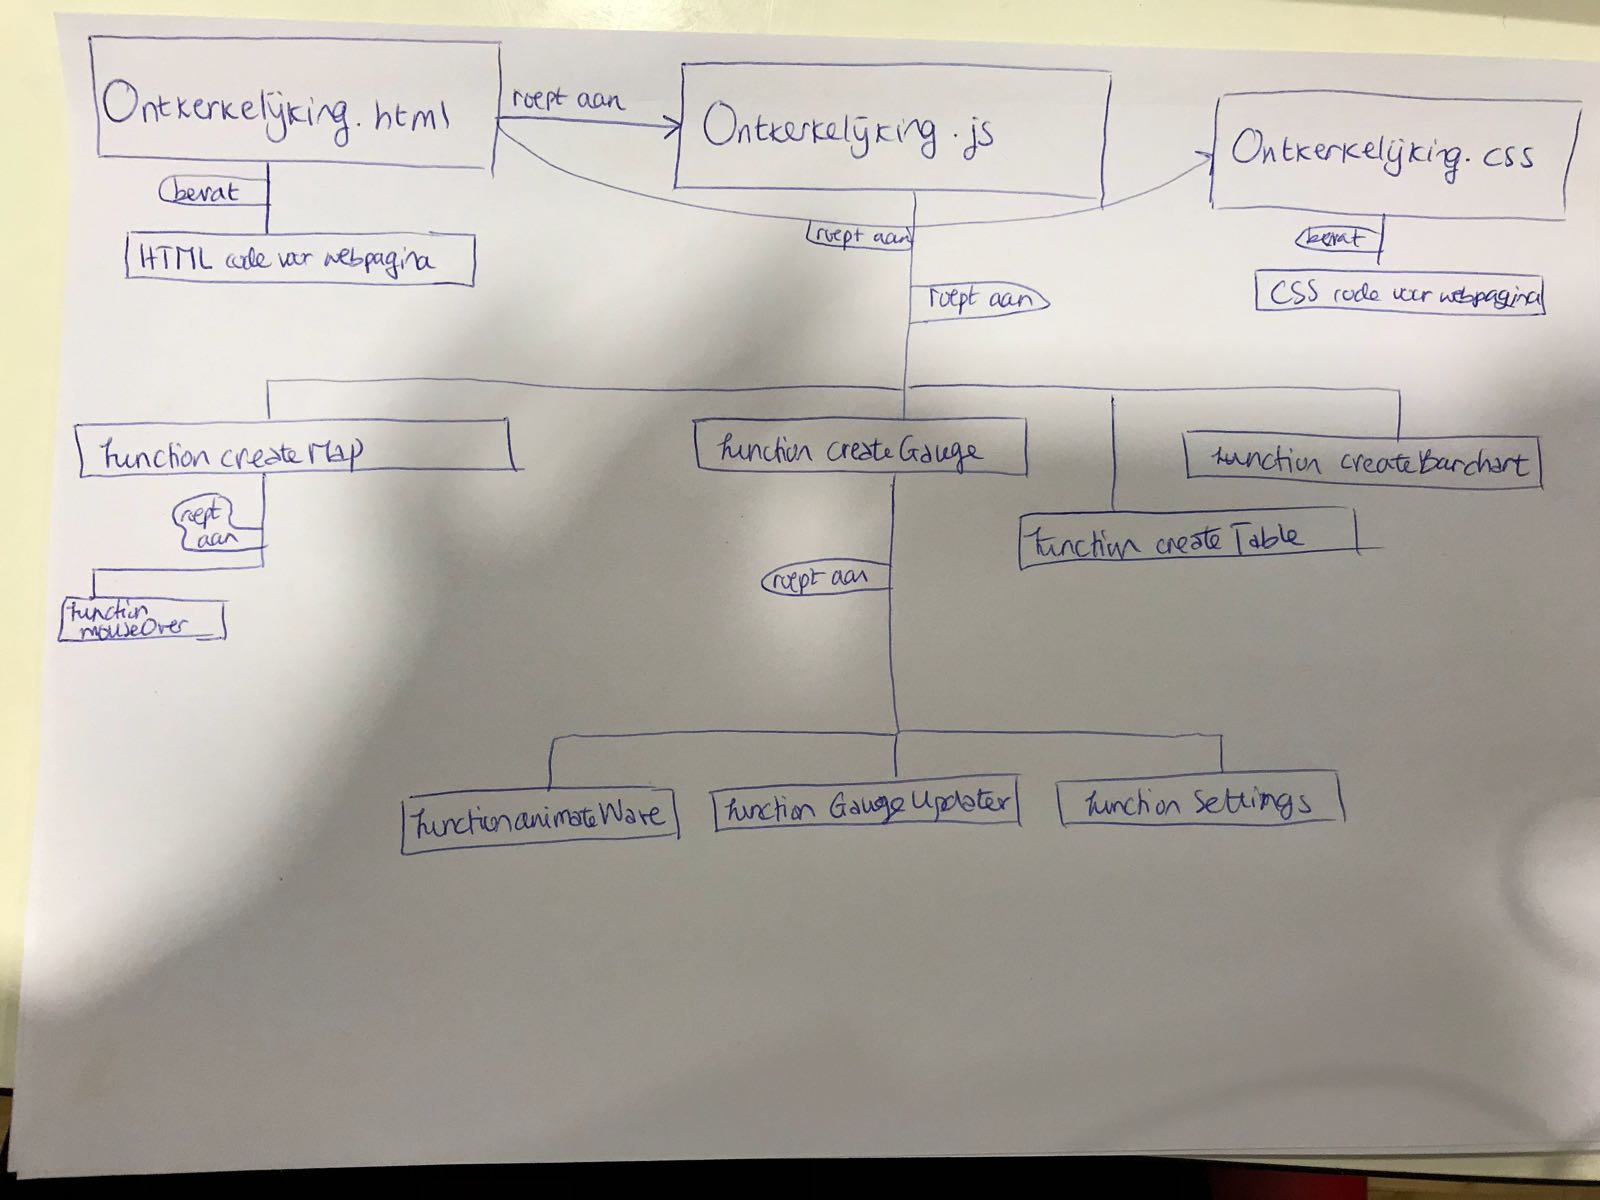 Ontkerkelijking.html
roept aan
Ontkerkelijking.js
Ontkerkelijking.css
bevat
HTML code voor webpagina
roept aan
bevat
CSS code voor webpagina
roept aan
function createMap
function createGauge
function createBarchart
roept
aan
function createTable
roept aan
function
mouseOver
function animateWave
function GaugeUpdater
function Settings